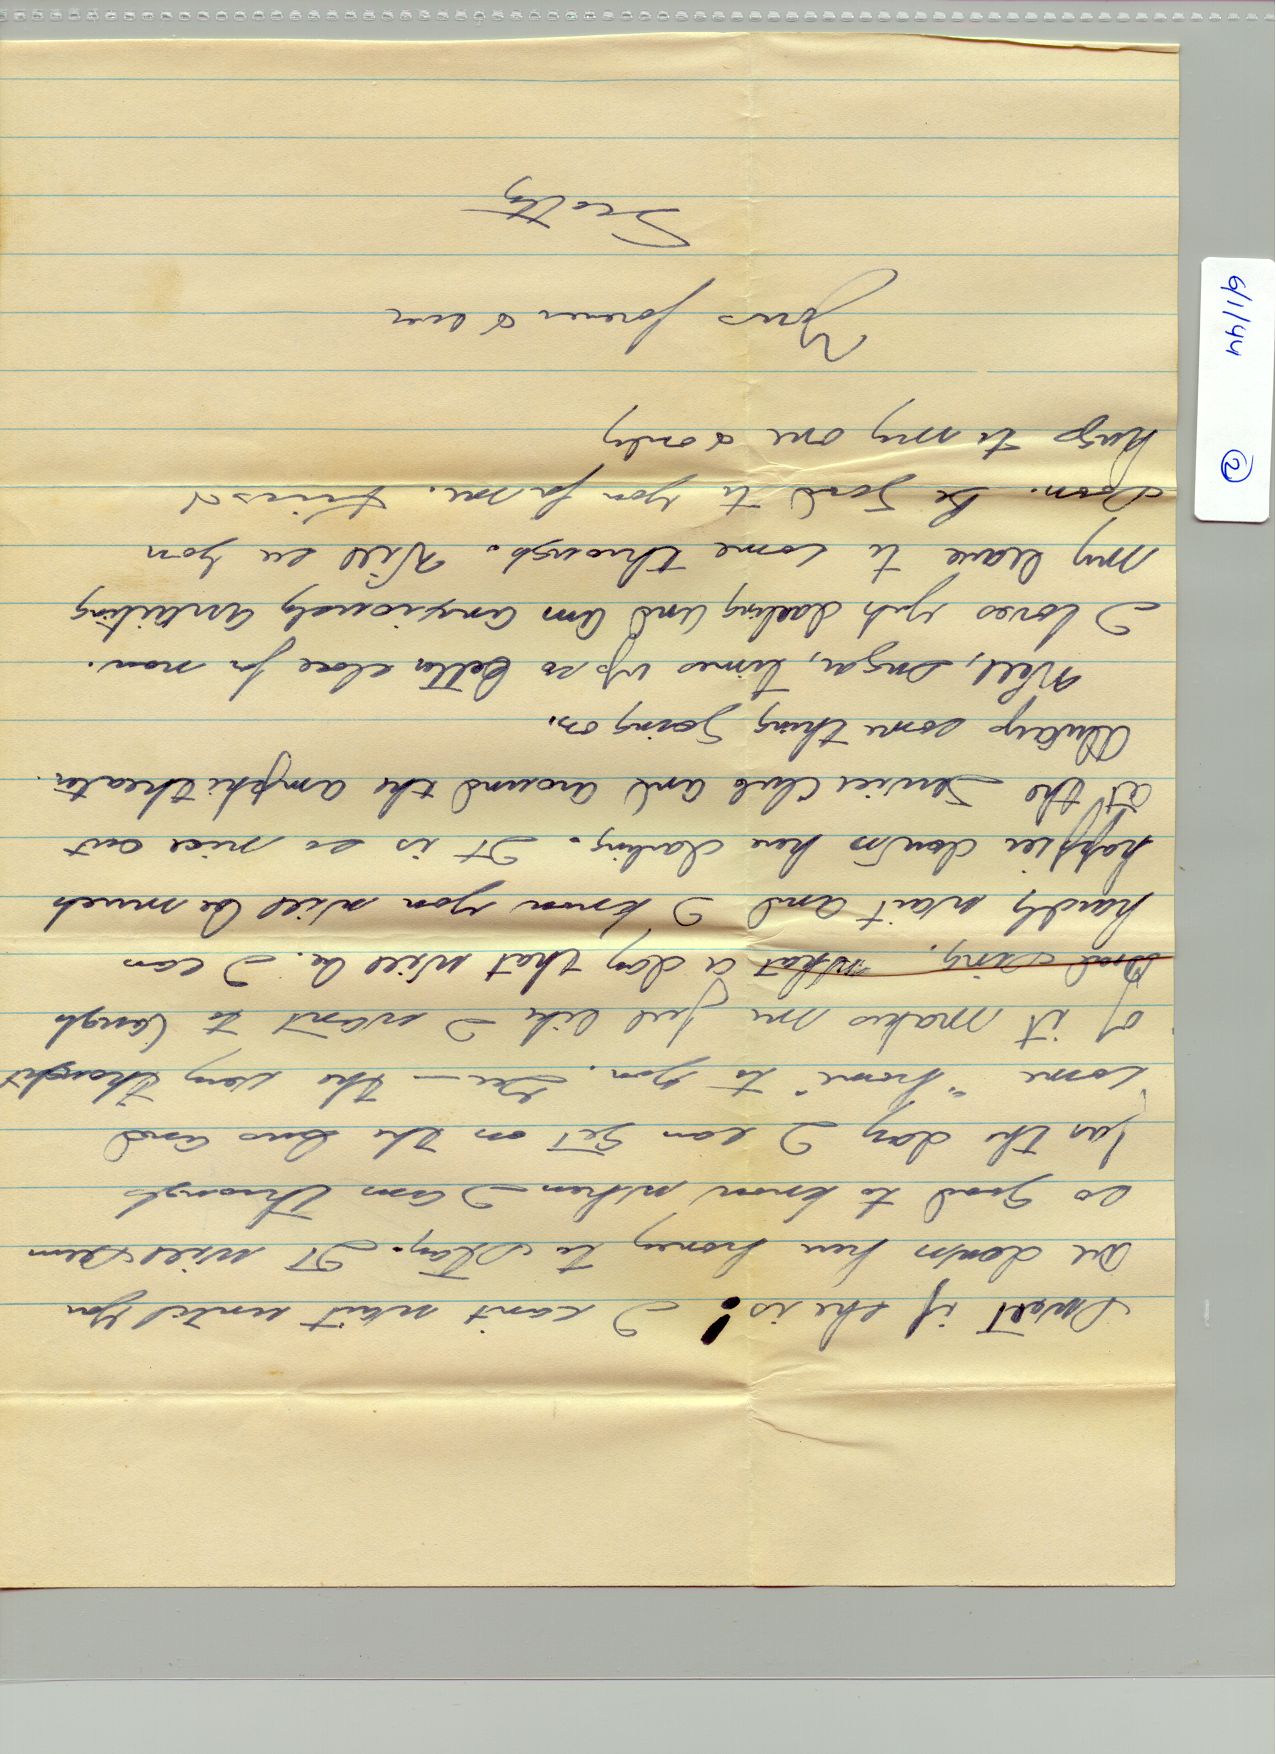 swell if she is! I can't wait until you
are down here honey to stay. It will seem
so good to know when I am through
for the day I can get on the bus and
come "home" to you. Gee — the very thought
of it makes me feel like I want to laugh
and sing. What a day that will be. I can
hardly wait and I know you will be much
happier down here darling. It is so nice out
at the Service Club and around the amphitheater.
Always some thing going on.
Well, sugar, times up so better close for now.
I loves yuh darling and am anxiously awaiting
my leave to come through. Will see you
soon. Be good to you for me. Kiss &
hugs to my one & only
Yours forever & ever
Scotty
6/1/44 2